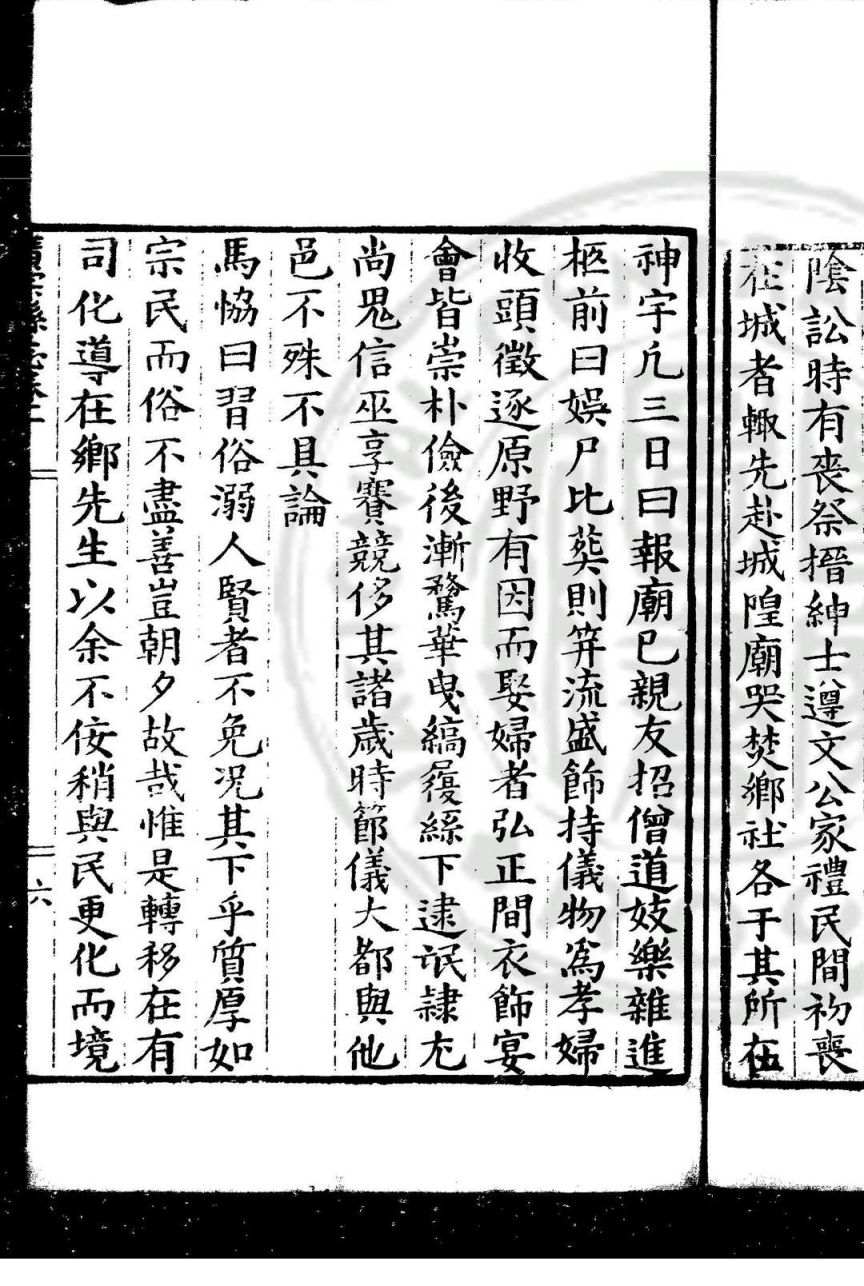 陰訟時有喪祭搢紳士遵文公家禮民間初喪
在城者輙先赴城隍廟哭焚鄉社各于其所在
神宇凢三日曰報廟已親友招僧道妓樂雜進
柩前曰娛尸比𦵏則笄流盛飾持儀物為孝婦
收頭徵逐原野有因而娶婦者弘正間衣飾宴
會皆崇朴儉後漸騖華曳縞履絲下逮氓隷尤
尚鬼信巫享賽競侈其諸歲時節儀大都與他
邑不殊不具論
馬恊曰習俗溺人賢者不免况其下乎質厚如
宗民而俗不盡善豈朝夕故哉惟是轉移在有
司化導在鄉先生以余不佞稍與民更化而境
縣志卷二
六